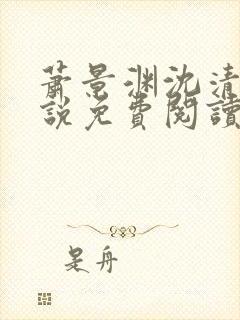 蕭景渊沈清
說免費閱讀
是舟